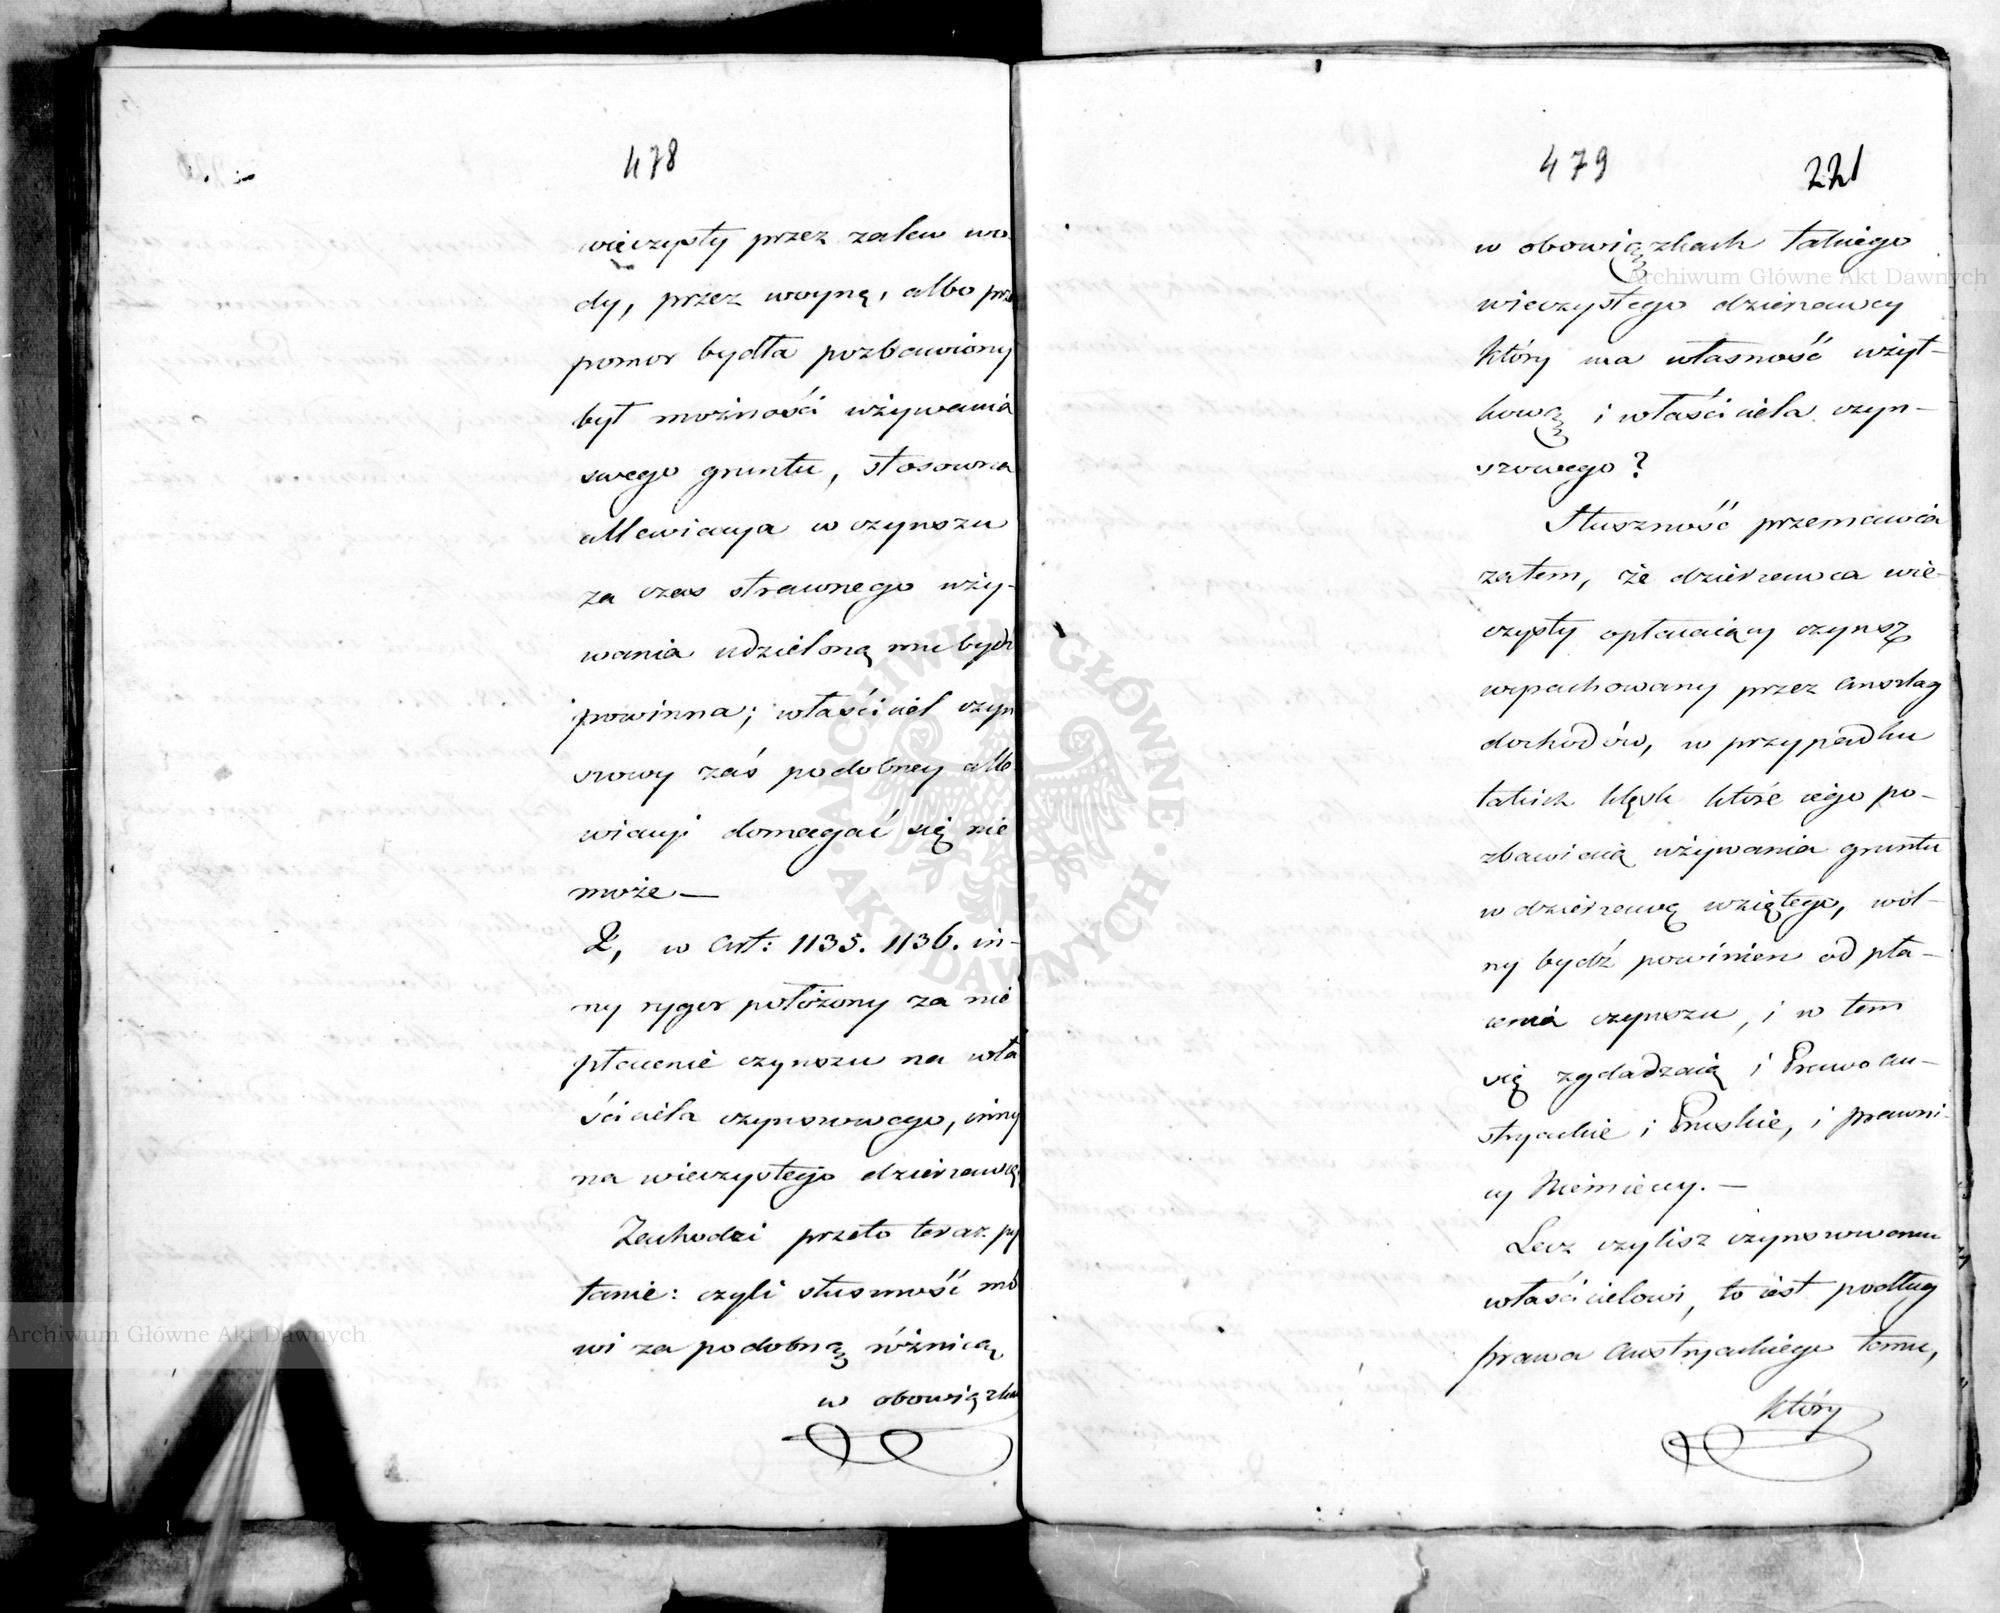 478
wieczysty przez zalew wo-
dy, przez woynę, albo prze
pomor bydła pozbawiony
był możności używania
swego gruntu, stosowna
allewiacya w czynszu
za czas straconego uży-
wania udzieloną mu bydź
powinna; właściciel czyn
szowy zaś podobney alle
wiacyi domagać się nie
może —
2, w Art: 1135. 1136. in-
ny rygor położony za nie
płacenie czynszu na wła
ściciela czynszowego, inny
na wieczystego dzierzawcę.
Zachodzi przeto teraz py
tanie: czyli słuszność mó
wi za podobną różnicą
w obowiązkach
479 221
w obowiązkach takiego
wieczystego dzierzawcy
który ma własność użyt-
kową i właściciela czyn-
szowego?
Słuszność przemawia
zatem, że dzierzawca wie-
czysty opłacaiący czynsz
wyrachowany przez Anszlag
dochodów, w przypadku
takich klęsk które iego po-
zbawiaią używania gruntu
w dzierzawę wziętego, wol-
ny bydź powinien od pła-
cenia czynszu, i w tem
się zgadzaią i Prawo Au-
stryackie i Pruskie, i prawni-
cy Niemieccy. —
Lecz czylisz czynszowemu
właścicielowi, to iest podług
prawa Austryackiego temu,
który
Archiwum Główne Akt Dawnych
Archiwum Główne Akt Dawnych
· ARCHIWUM GŁÓWNE · AKT DAWNYCH